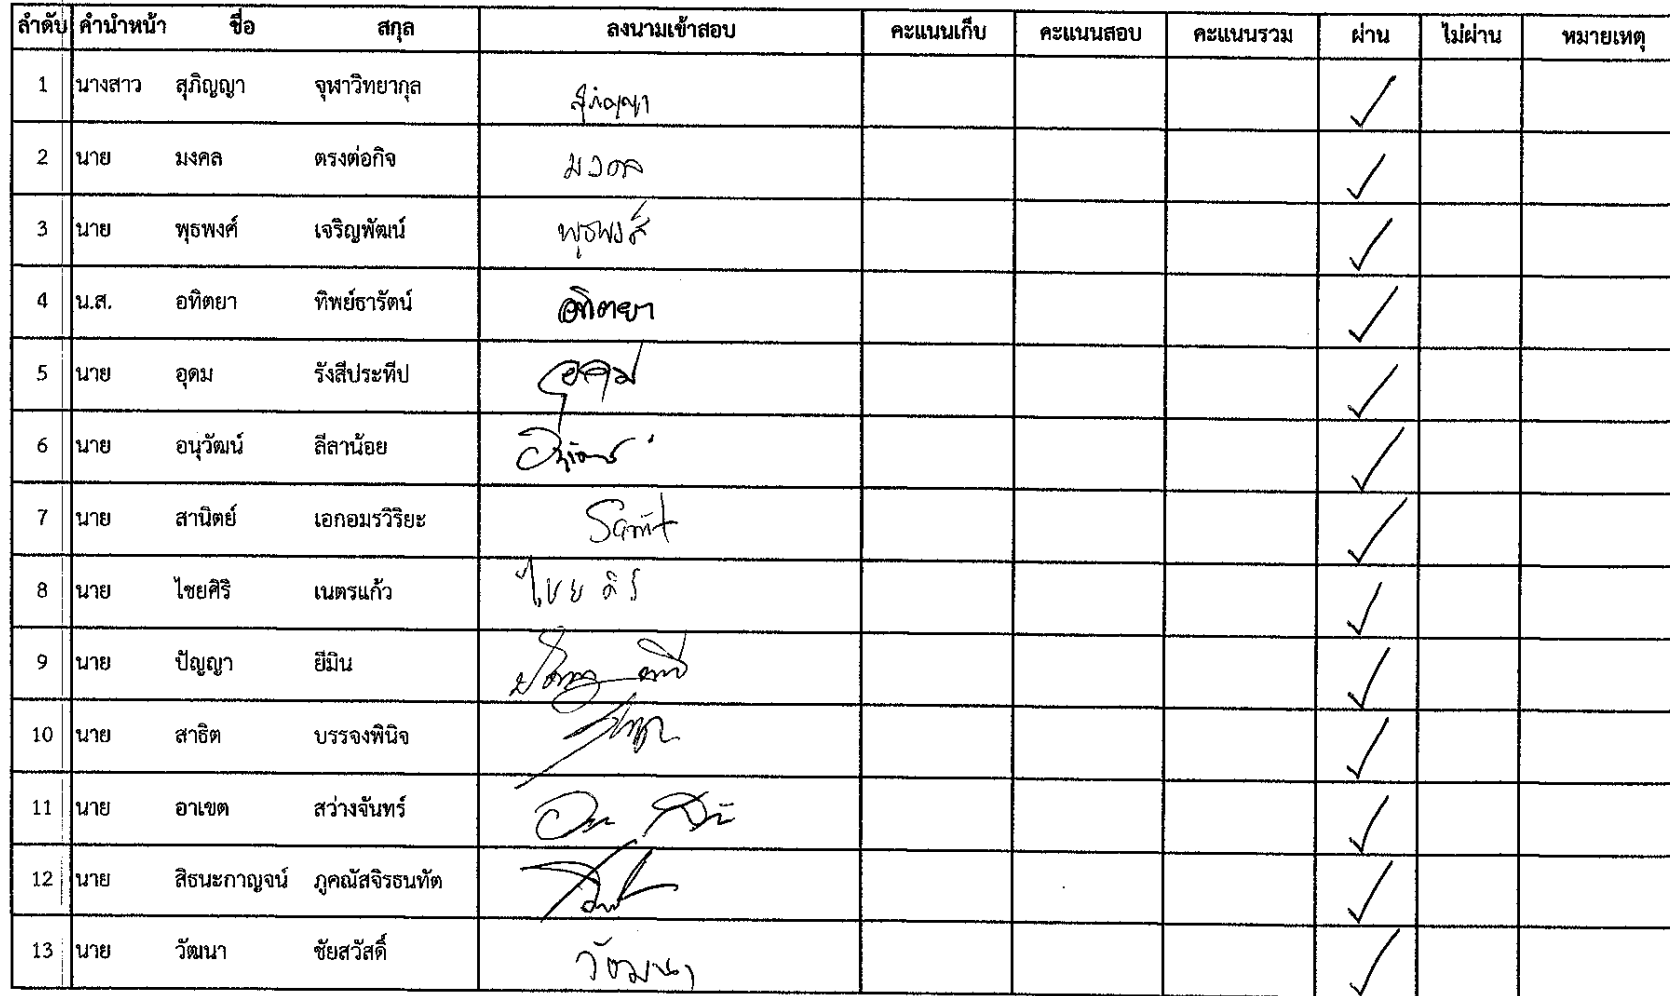 ลำดับ คำนำหน้า ชื่อ สกุล ลงนามเข้าสอบ คะแนนเก็บ คะแนนสอบ คะแนนรวม ผ่าน ไม่ผ่าน หมายเหตุ
1 นางสาว สุภิญญา จุฬาวิทยากุล สุภิญญา ✓
2 นาย มงคล ตรงต่อกิจ มงคล ✓
3 นาย พุธพงศ์ เจริญพัฒน์ พุธพงศ์ ✓
4 น.ส. อทิตยา ทิพย์ธารัตน์ อทิตยา ✓
5 นาย อุดม รังสีประทีป อุดม ✓
6 นาย อนุวัฒน์ ลีลาน้อย ✓
7 นาย สานิตย์ เอกอมรวิริยะ Sanit ✓
8 นาย ไชยศิริ เนตรแก้ว ไชยศิริ ✓
9 นาย ปัญญา ยีมิน ✓
10 นาย สาธิต บรรจงพินิจ ✓
11 นาย อาเขต สว่างจันทร์ ✓
12 นาย สิธนะกาญจน์ ภูคณัสจิรธนทัต ✓
13 นาย วัฒนา ชัยสวัสดิ์ วัฒนา ✓